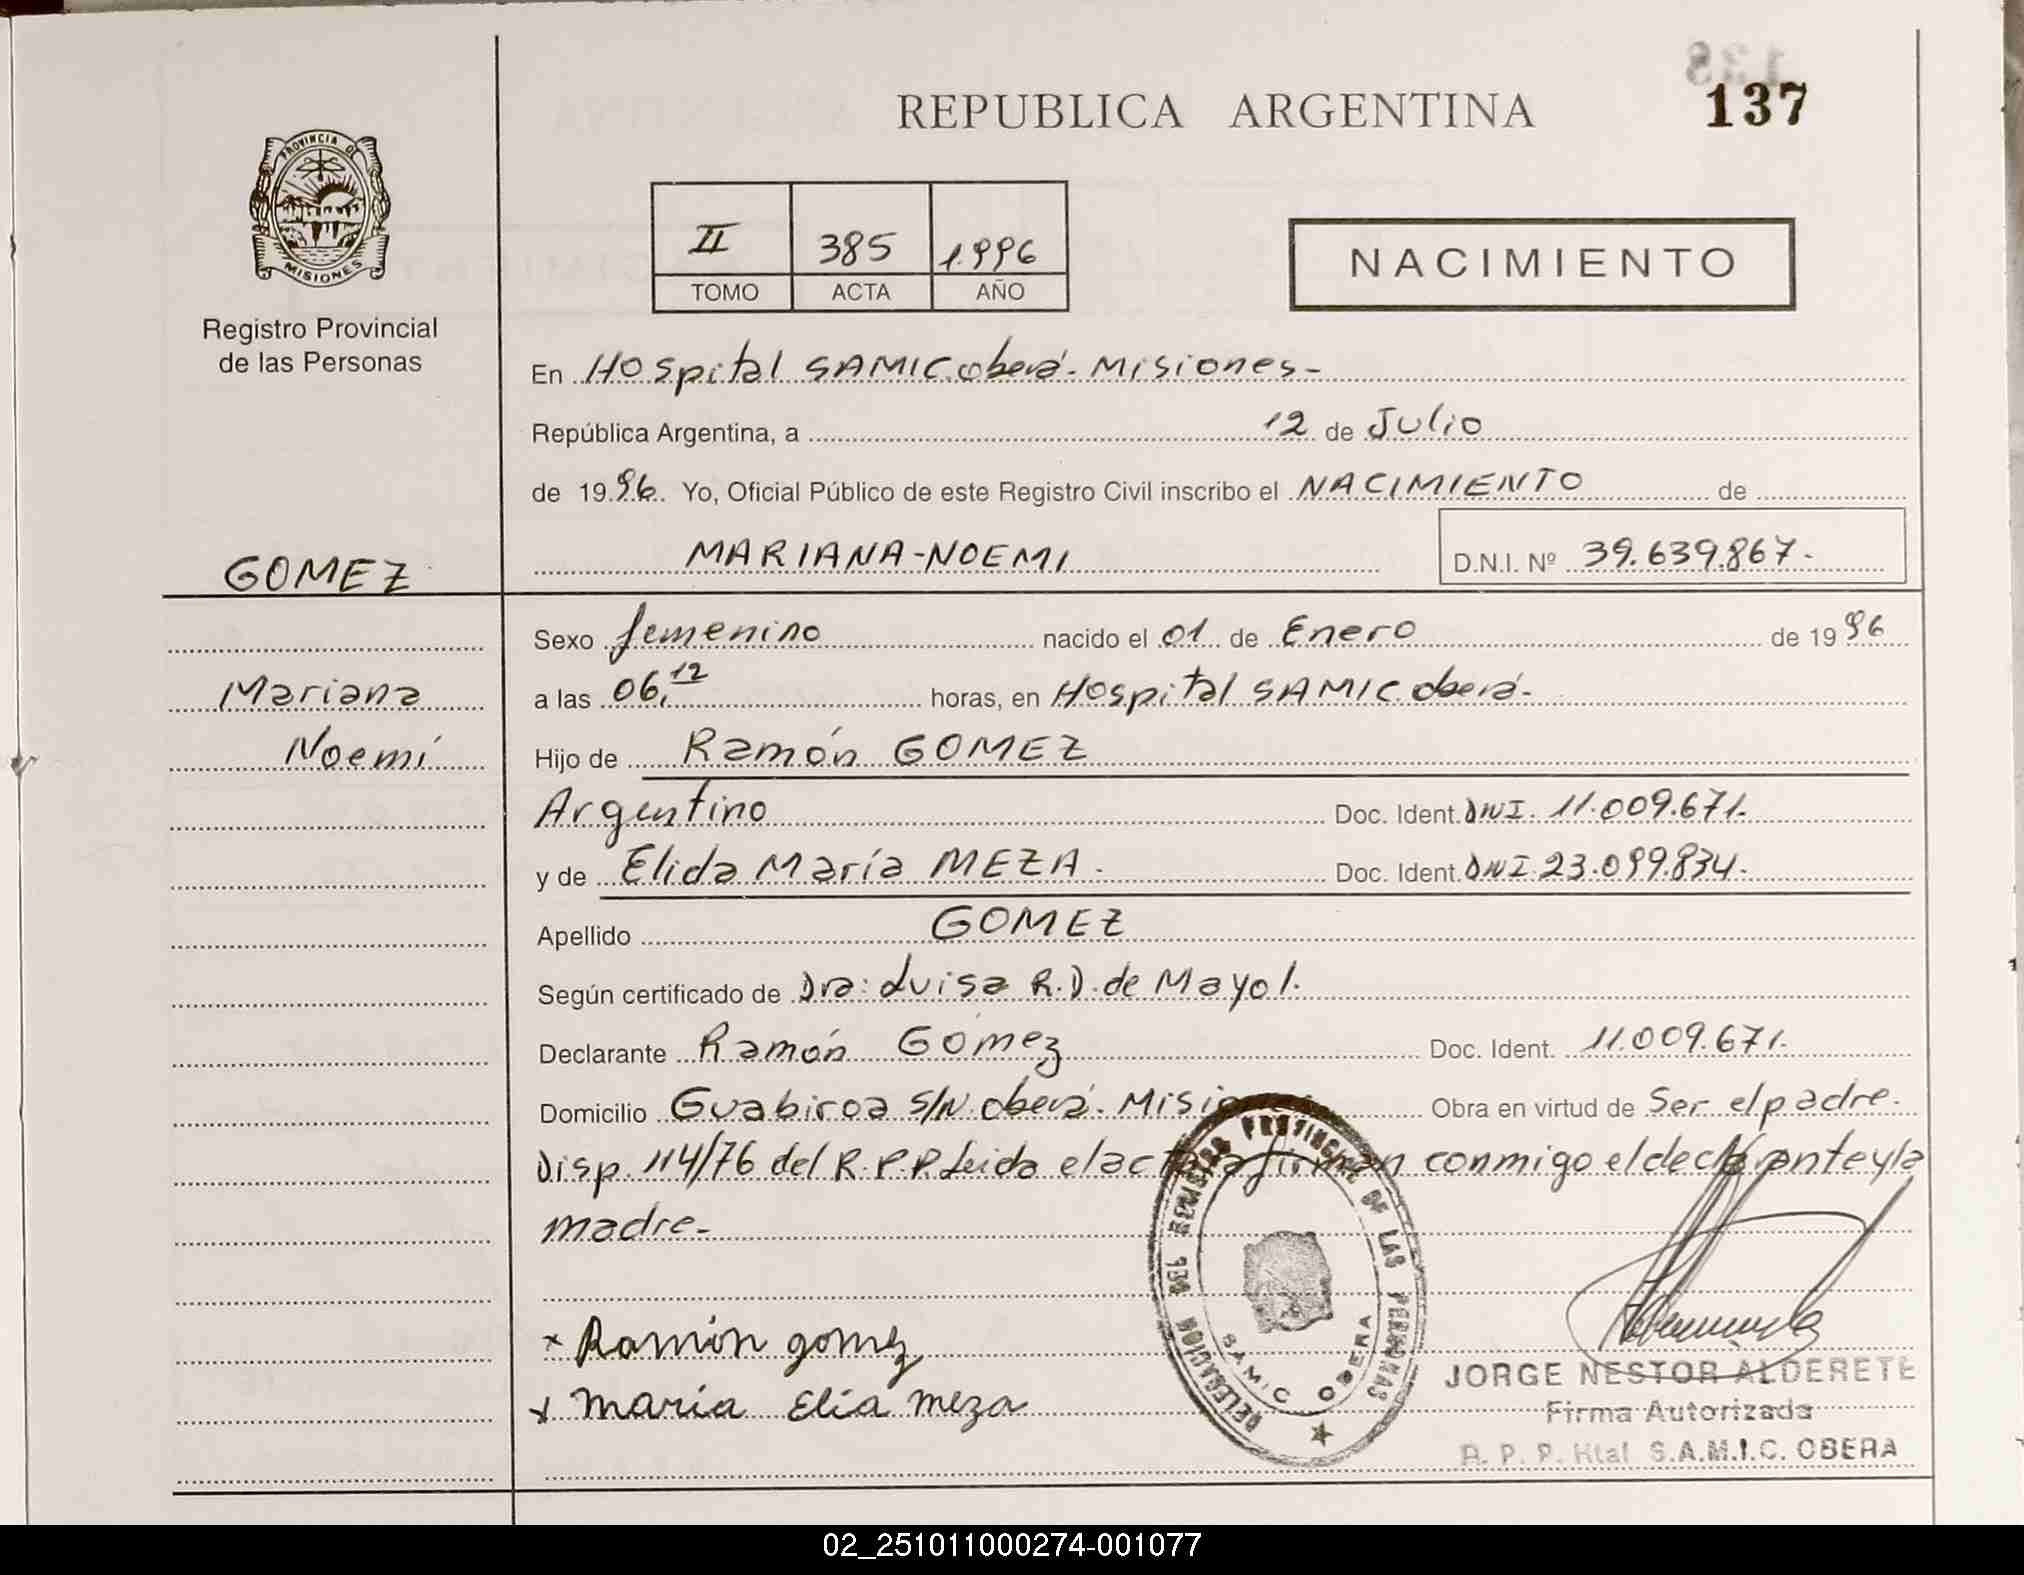 138
REPUBLICA ARGENTINA
137
PROVINCIA DE
MISIONES
Registro Provincial
de las Personas
II 385 1.996
TOMO ACTA AÑO
NACIMIENTO
En Hospital SAMIC. oberá. Misiones-
República Argentina, a 12 de Julio
de 1996. Yo, Oficial Público de este Registro Civil inscribo el NACIMIENTO de
MARIANA-NOEMI D.N.I. Nº 39.639.867.-
GOMEZ
Mariana
Noemí
Sexo femenino nacido el 01 de Enero de 1996
a las 06,12 horas, en Hospital SAMIC. oberá-
Hijo de Ramón GOMEZ
Argentino Doc. Ident. DNI. 11.009.671.
y de Elida María MEZA. Doc. Ident. DNI. 23.099.834.
Apellido GOMEZ
Según certificado de Dra: Luisa R.D. de Mayol.
Declarante Ramón Gómez Doc. Ident. 11.009.671.
Domicilio Guabiroa S/N. oberá. Misiones Obra en virtud de Ser el padre.
Disp. 114/76 del R.P.P. Leida el acta firman conmigo el declarante y la
madre.-
x Ramón gomez
x maría Elia meza
DELEGACION DEL REGISTRO PROVINCIAL DE LAS PERSONAS
SAMIC OBERA
JORGE NESTOR ALDERETE
Firma Autorizada
R. P. P. Htal S.A.M.I.C. OBERA
02_251011000274-001077